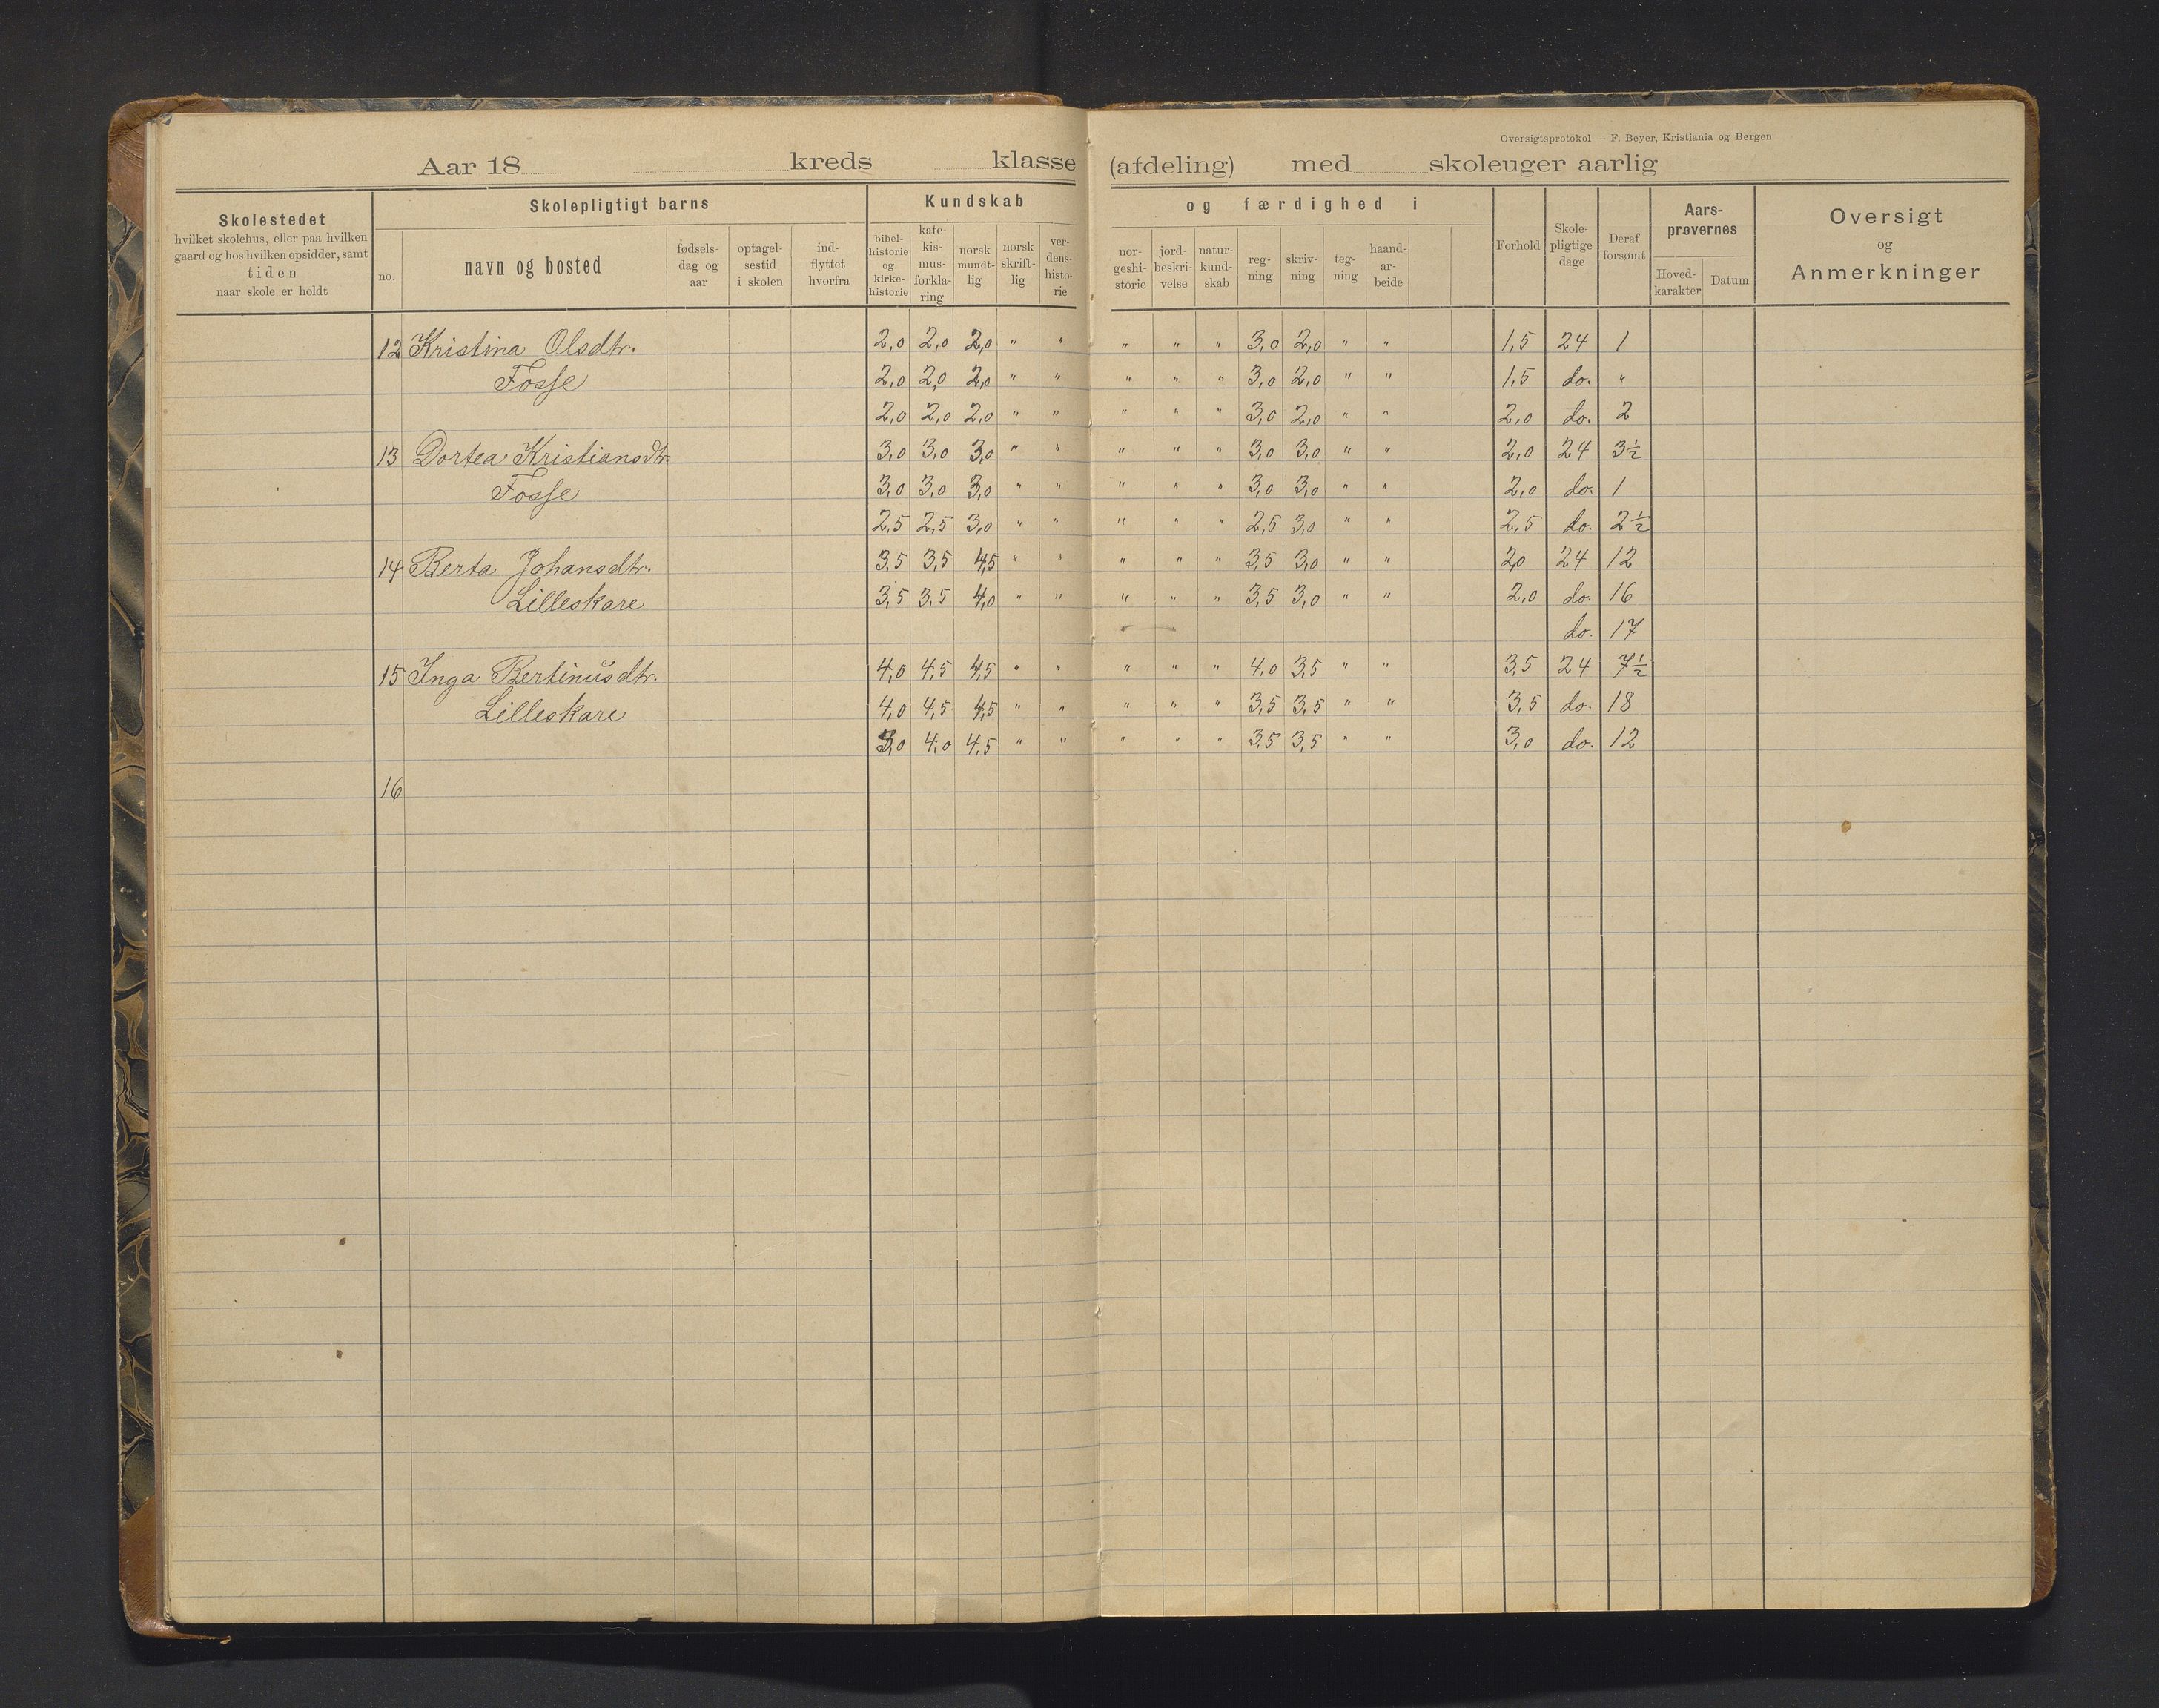 Oversigtsprotokol — F. Beyer, Kristiania og Bergen
Aar 18 kreds klasse (afdeling) med skoleuger aarlig
Skolestedet
hvilket skolehus, eller paa hvilken
gaard og hos hvilken opsidder, samt
tiden
naar skole er holdt
Skolepligtigt barns
no.
navn og bosted
fødsels-
dag og
aar
optagel-
sestid
i skolen
ind-
flyttet
hvorfra
Kundskab
bibel-
historie
og
kirke-
historie
kate-
kis-
mus-
forkla-
ring
norsk
mundt-
lig
norsk
skrift-
lig
ver-
dens-
histo-
rie
og færdighed i
nor-
geshi-
storie
jord-
beskri-
velse
natur-
kund-
skab
reg-
ning
skriv-
ning
teg-
ning
haand-
ar-
beide
Forhold
Skole-
pligtige
dage
Deraf
forsømt
Aars-
prøvernes
Hoved-
karakter
Datum
Oversigt
og
Anmerkninger
12 Kristina Olsdtr. 2,0 2,0 2,0 " " " " " 3,0 2,0 " " 1,5 24 1
Fosse 2,0 2,0 2,0 " " " " " 3,0 2,0 " " 1,5 do. "
2,0 2,0 2,0 " " " " " 3,0 2,0 " " 2,0 do. 2
13 Dortea Kristiansdtr. 3,0 3,0 3,0 " " " " " 3,0 3,0 " " 2,0 24 3½
Fosse 3,0 3,0 3,0 " " " " " 3,0 3,0 " " 2,0 do. 1
2,5 2,5 3,0 " " " " " 2,5 3,0 " " 2,5 do. 2½
14 Berta Johansdtr. 3,5 3,5 4,5 " " " " " 3,5 3,0 " " 2,0 24 12
Lilleskare 3,5 3,5 4,0 " " " " " 3,5 3,0 " " 2,0 do. 16
do. 17
15 Inga Bertinusdtr. 4,0 4,5 4,5 " " " " " 4,0 3,5 " " 3,5 24 7½
Lilleskare 4,0 4,5 4,5 " " " " " 3,5 3,5 " " 3,5 do. 18
3,0 4,0 4,5 " " " " " 3,5 3,5 " " 3,0 do. 12
16